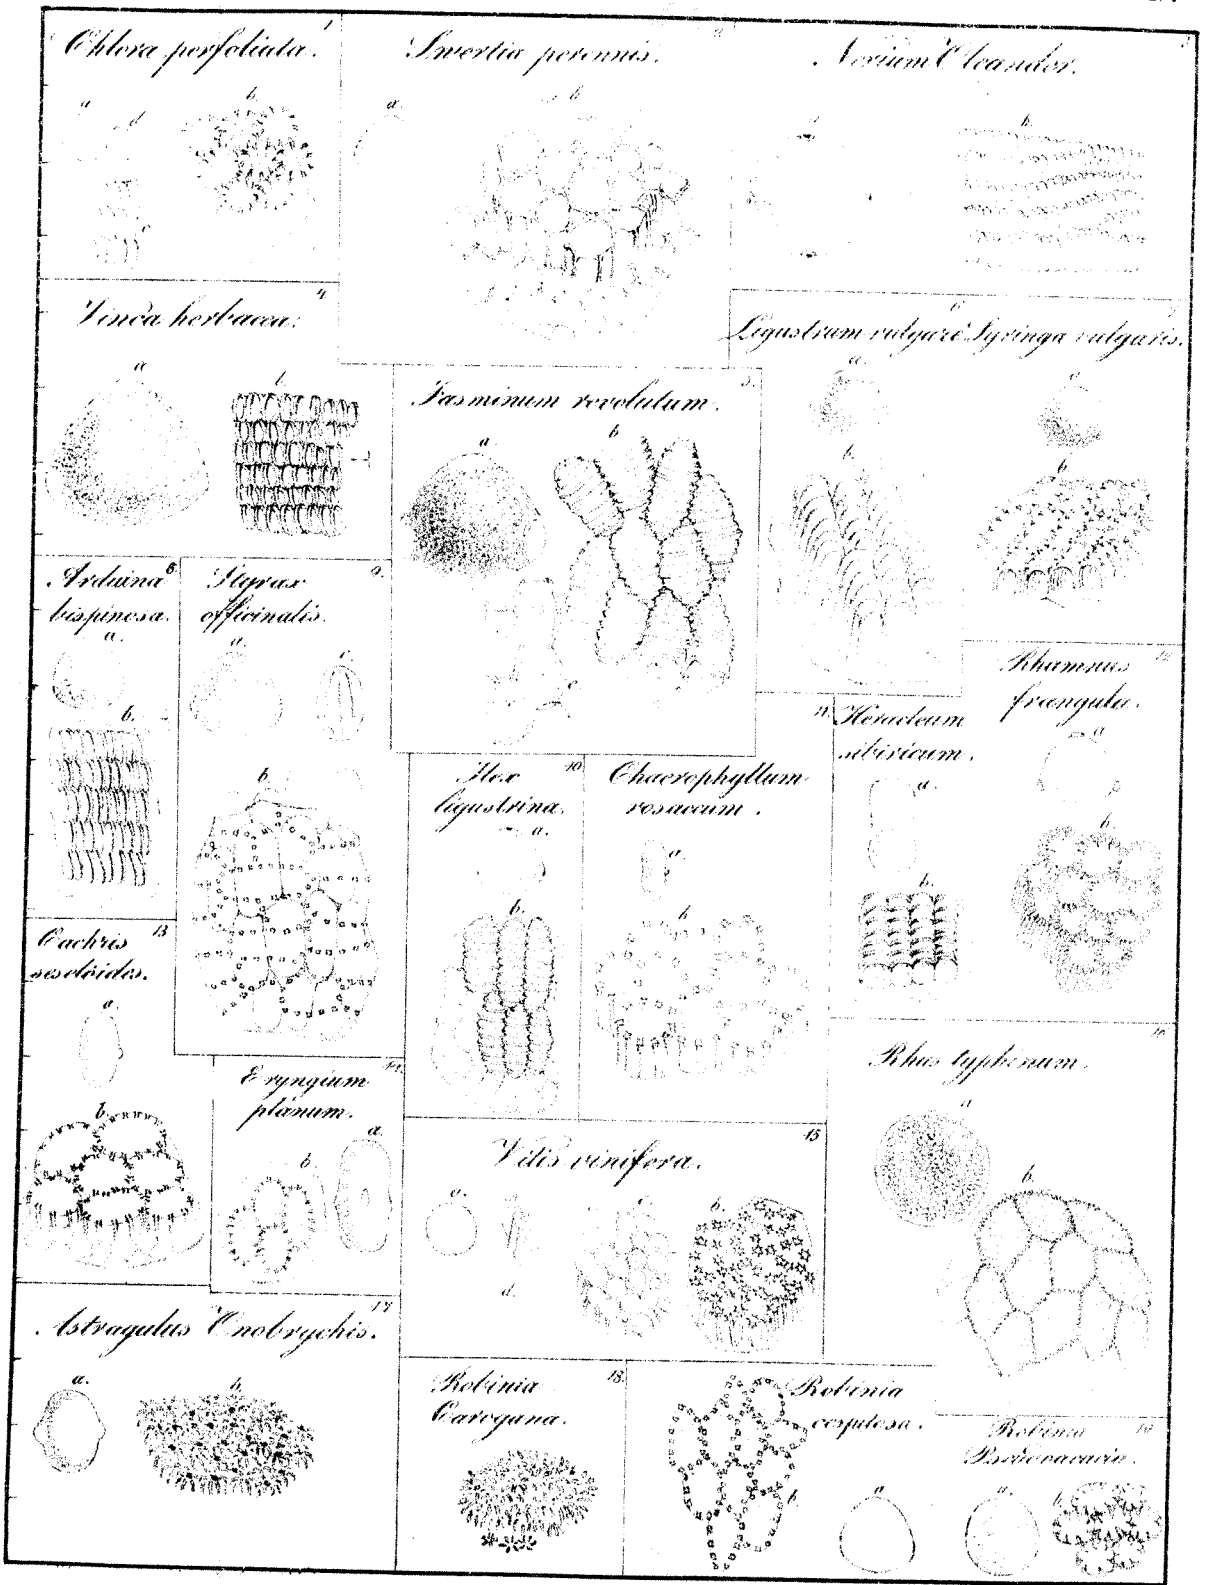 Chlora perfoliata. 1
a d b.
Swertia perennis. 2
a. b
Nerium Oleander. 3
b.
Vinca herbacea. 4
a b.
Jasminum revolutum. 5.
a b c
Ligustrum vulgare
a. b.
Syringa vulgaris.
a. b.
Arduina 8
bispinosa.
a. b.
Styrax 9.
officinalis.
a. b.
Ilex 10.
ligustrina.
a. b.
Chaerophyllum 11.
rosaceum.
a. b
Heracleum
sibiricum.
a. b.
Rhamnus 12
frangula.
a b.
Cachris 13
seseloides.
a. b.
Eryngium 14.
planum.
a. b.
Vitis vinifera. 15
a. c b. d.
Rhus typhinum. 16
a b.
Astragulus Onobrychis. 17
a. b.
Robinia 18.
Caragana.
Robinia
cespitosa.
b. a
Robinia
Pseudoacacia.
a b.